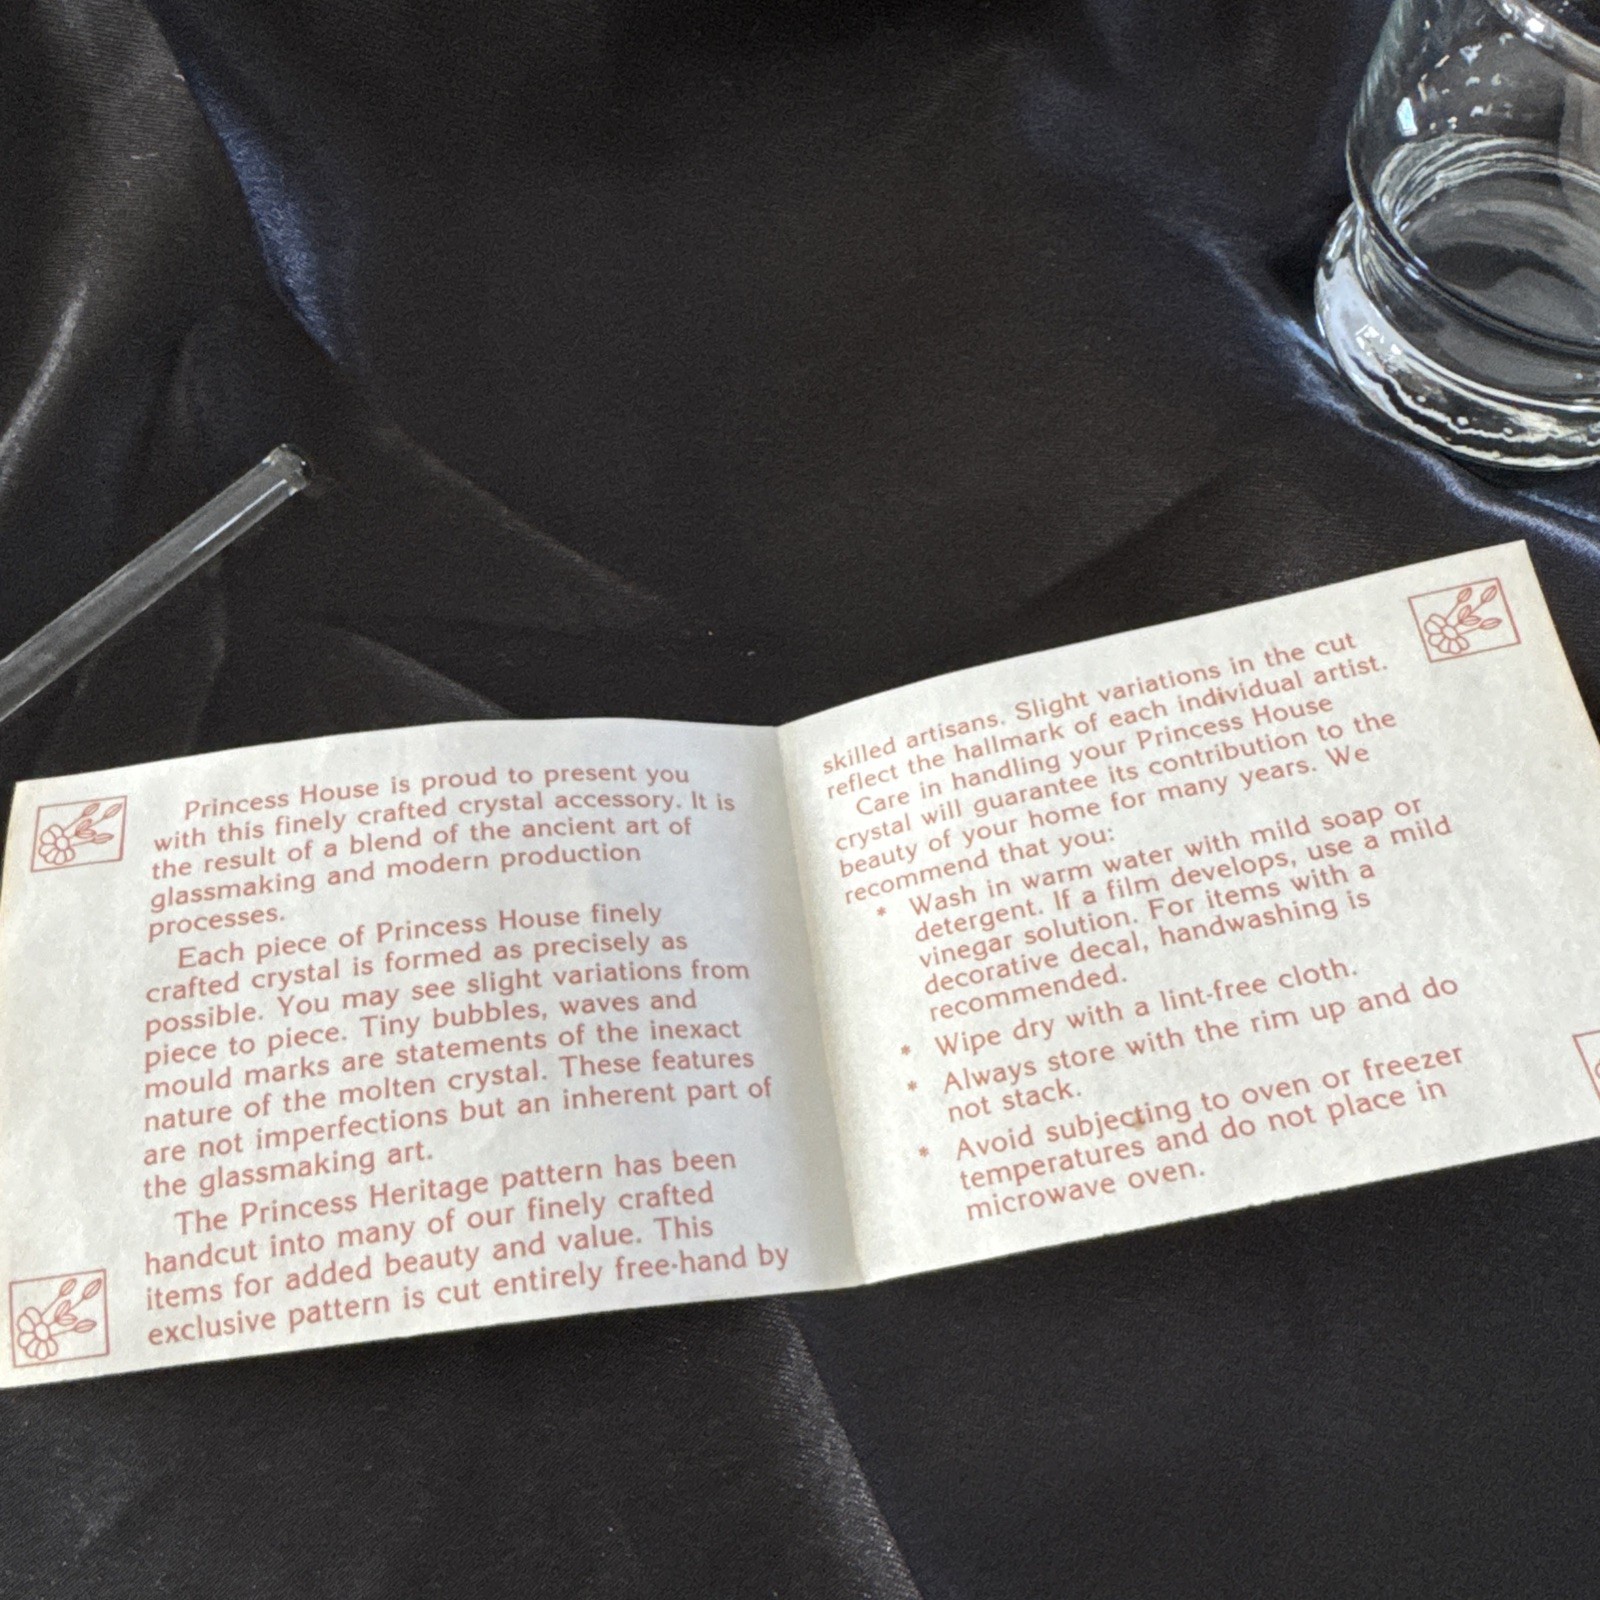 Princess House is proud to present you
with this finely crafted crystal accessory. It is
the result of a blend of the ancient art of
glassmaking and modern production
processes.
Each piece of Princess House finely
crafted crystal is formed as precisely as
possible. You may see slight variations from
piece to piece. Tiny bubbles, waves and
mould marks are statements of the inexact
nature of the molten crystal. These features
are not imperfections but an inherent part of
the glassmaking art.
The Princess Heritage pattern has been
handcut into many of our finely crafted
items for added beauty and value. This
exclusive pattern is cut entirely free-hand by
skilled artisans. Slight variations in the cut
reflect the hallmark of each individual artist.
Care in handling your Princess House
crystal will guarantee its contribution to the
beauty of your home for many years. We
recommend that you:
* Wash in warm water with mild soap or
detergent. If a film develops, use a mild
vinegar solution. For items with a
decorative decal, handwashing is
recommended.
* Wipe dry with a lint-free cloth.
* Always store with the rim up and do
not stack.
* Avoid subjecting to oven or freezer
temperatures and do not place in
microwave oven.